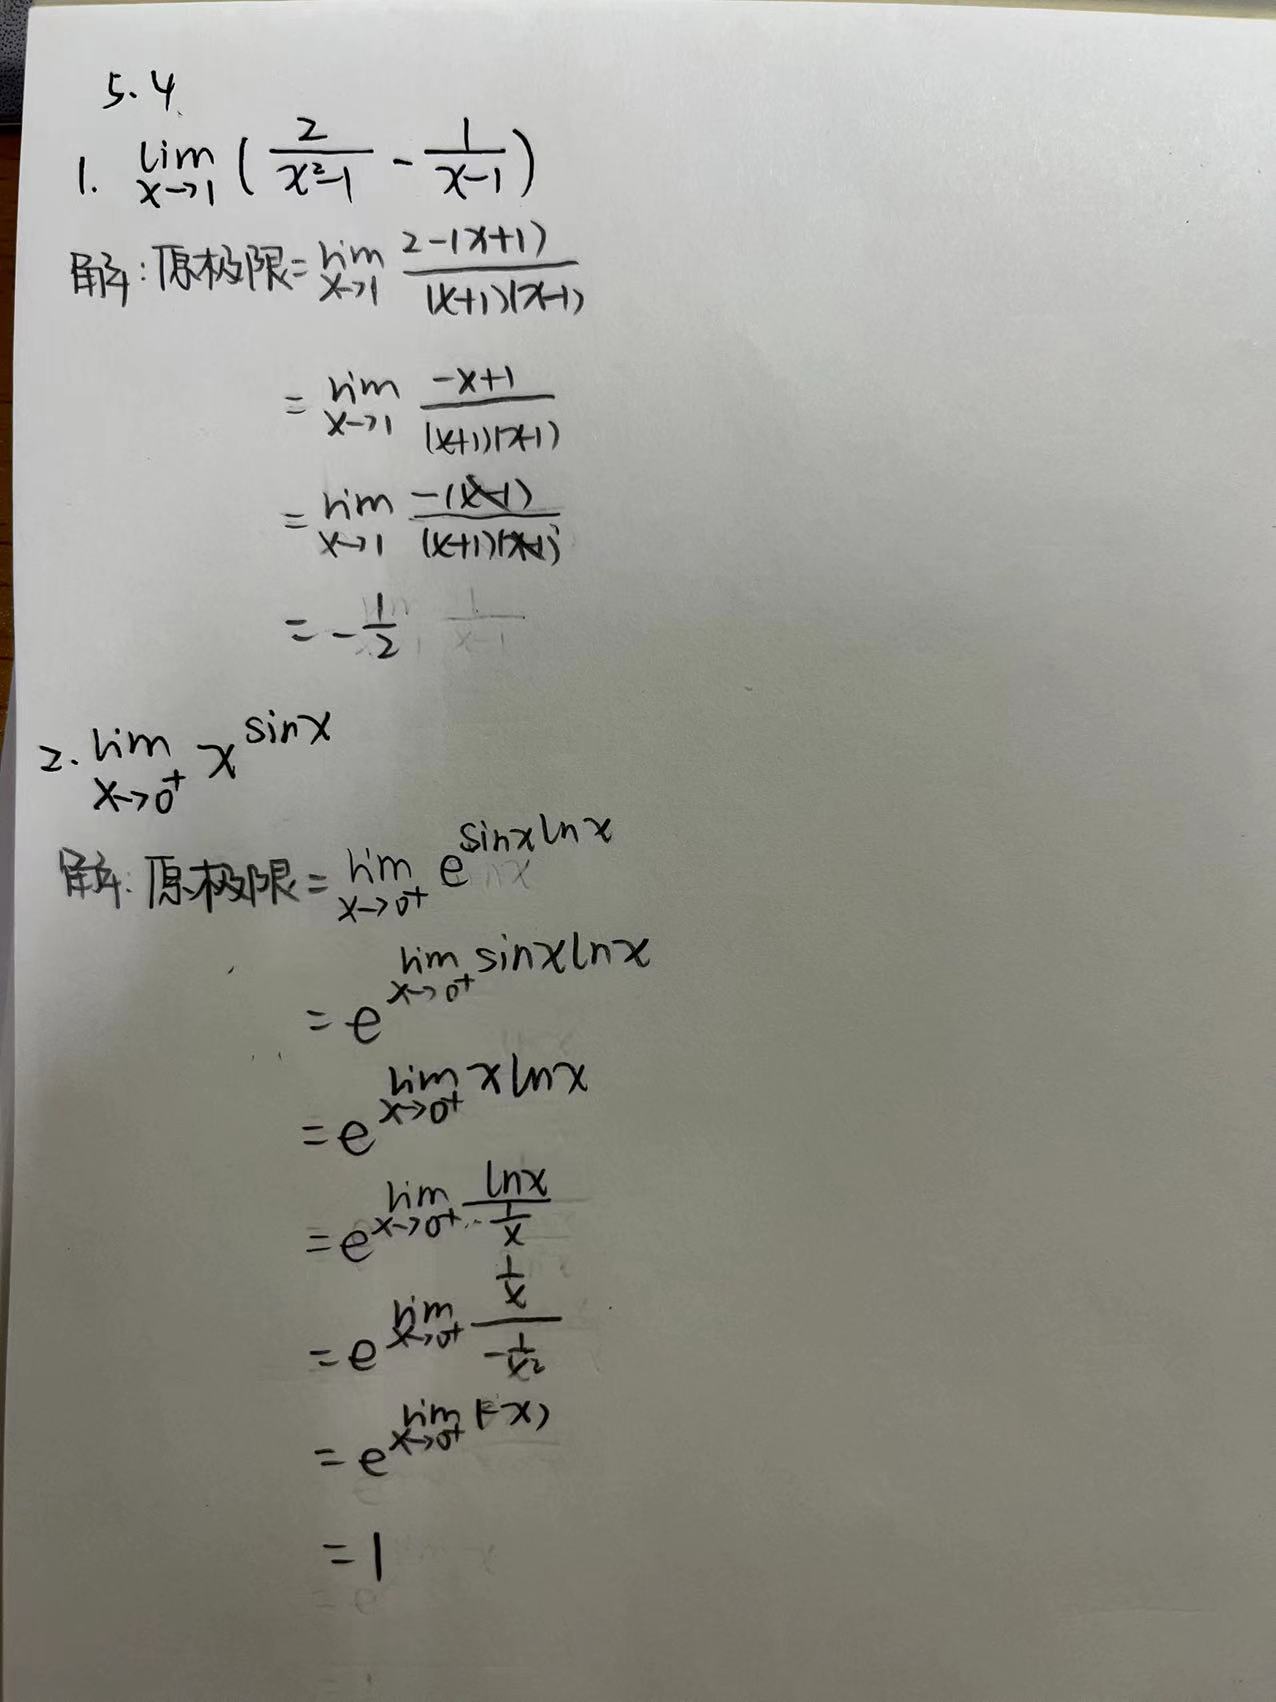 5.4
1. lim_{x→1} ( \frac{2}{x²-1} - \frac{1}{x-1} )
解:原极限= lim_{x→1} \frac{2-(x+1)}{(x+1)(x-1)}
= lim_{x→1} \frac{-x+1}{(x+1)(x-1)}
= lim_{x→1} \frac{-(x-1)}{(x+1)(x-1)}
= -\frac{1}{2}
2. lim_{x→0⁺} x^{sinx}
解:原极限= lim_{x→0⁺} e^{sinx lnx}
= e^{lim_{x→0⁺} sinx lnx}
= e^{lim_{x→0⁺} x lnx}
= e^{lim_{x→0⁺} \frac{lnx}{\frac{1}{x}}}
= e^{lim_{x→0⁺} \frac{\frac{1}{x}}{-\frac{1}{x²}}}
= e^{lim_{x→0⁺} (-x)}
= 1